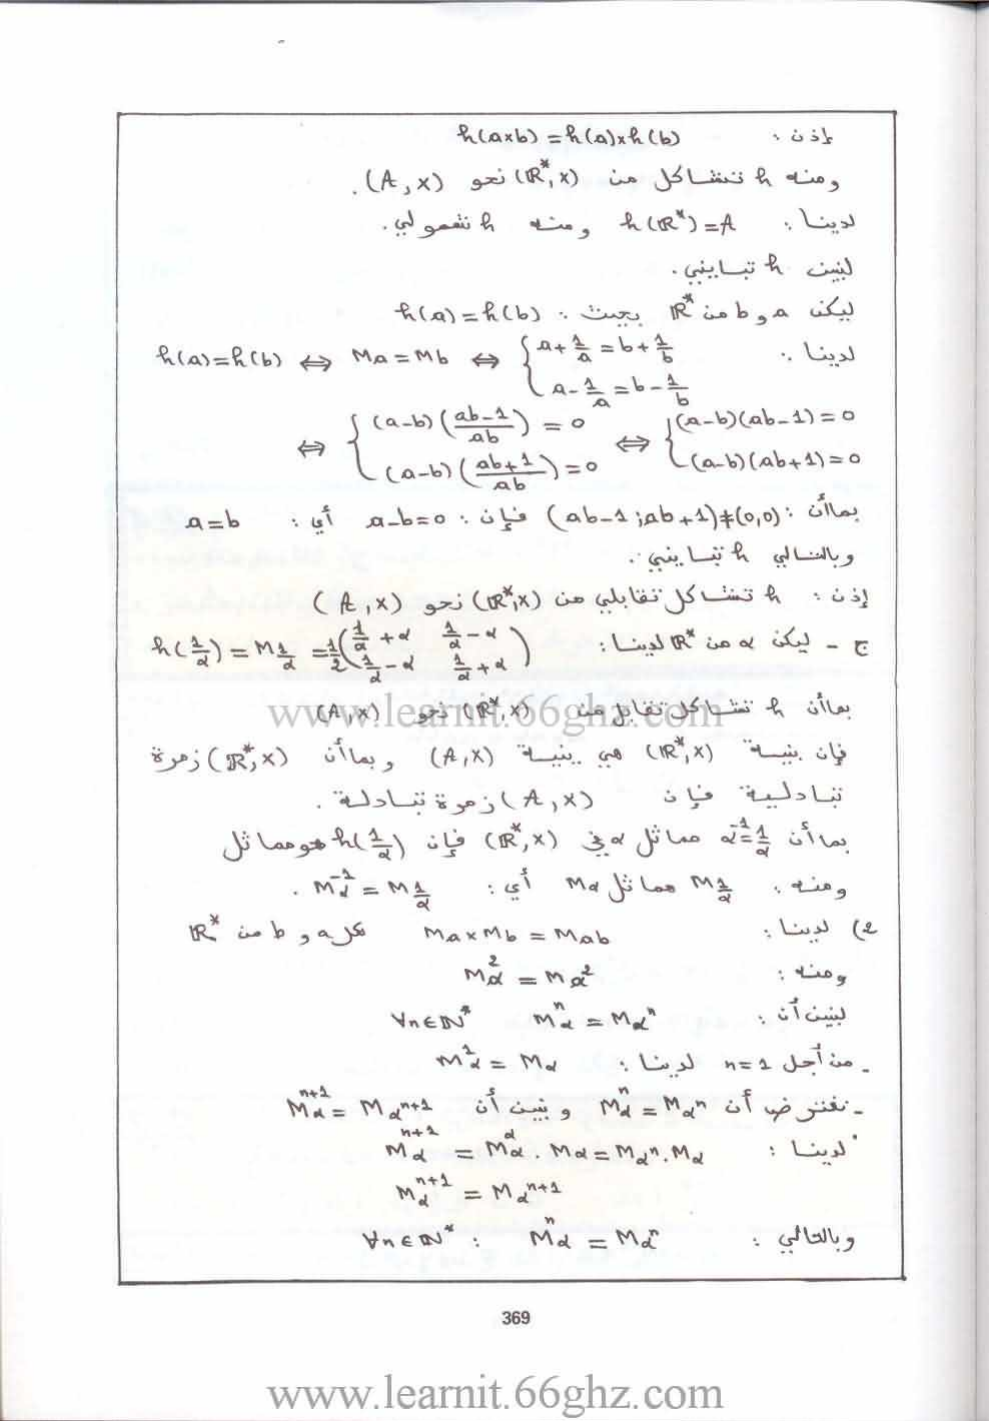 إذن : h(a×b) = h(a)×h(b)
ومنه h تشاكل من (ℝ*,×) نحو (A,×).
لدينا : h(ℝ*)=A ومنه h شمولي.
لنبين h تبايني.
ليكن a و b من ℝ* بحيث : h(a)=h(b)
لدينا : h(a)=h(b) ⇔ Ma=Mb ⇔ { a+1/a = b+1/b
a-1/a = b-1/b
⇔ { (a-b)((ab-1)/ab) = 0 ⇔ { (a-b)(ab-1)=0
(a-b)((ab+1)/ab)=0 (a-b)(ab+1)=0
بما أن : (ab-1;ab+1)≠(0,0) فإن : a-b=0 أي : a=b
وبالتالي h تبايني.
إذن : h تشاكل تقابلي من (ℝ*,×) نحو (A,×)
ج - ليكن α من ℝ* لدينا : h(1/α) = M1/α = 1/2 (1/α+α 1/α-α
1/α-α 1/α+α)
بما أن h تشاكل تقابل من (ℝ*,×) نحو (A,×)
www.learnit.66ghz.com
فإن بنية (ℝ*,×) هي بنية (A,×) وبما أن (ℝ*,×) زمرة
تبادلية فإن (A,×) زمرة تبادلة.
بما أن α⁻¹=1/α مماثل α في (ℝ*,×) فإن h(1/α) هو مماثل
ومنه : M1/α مماثل Mα أي : Mα⁻¹ = M1/α .
2) لدينا : Ma×Mb = Mab لكل a و b من ℝ*
ومنه : Mα² = Mα²
لنبين أن : Mαⁿ = Mαⁿ ∀n∈ℕ*
- من أجل n=1 لدينا : Mα¹ = Mα
- نفترض أن Mαⁿ = Mαⁿ ونبين أن Mαⁿ⁺¹ = Mαⁿ⁺¹
لدينا : Mαⁿ⁺¹ = Mα^α . Mα = Mαⁿ.Mα
Mαⁿ⁺¹ = Mαⁿ⁺¹
وبالتالي : Mαⁿ = Mαⁿ : ∀n∈ℕ*
369
www.learnit.66ghz.com